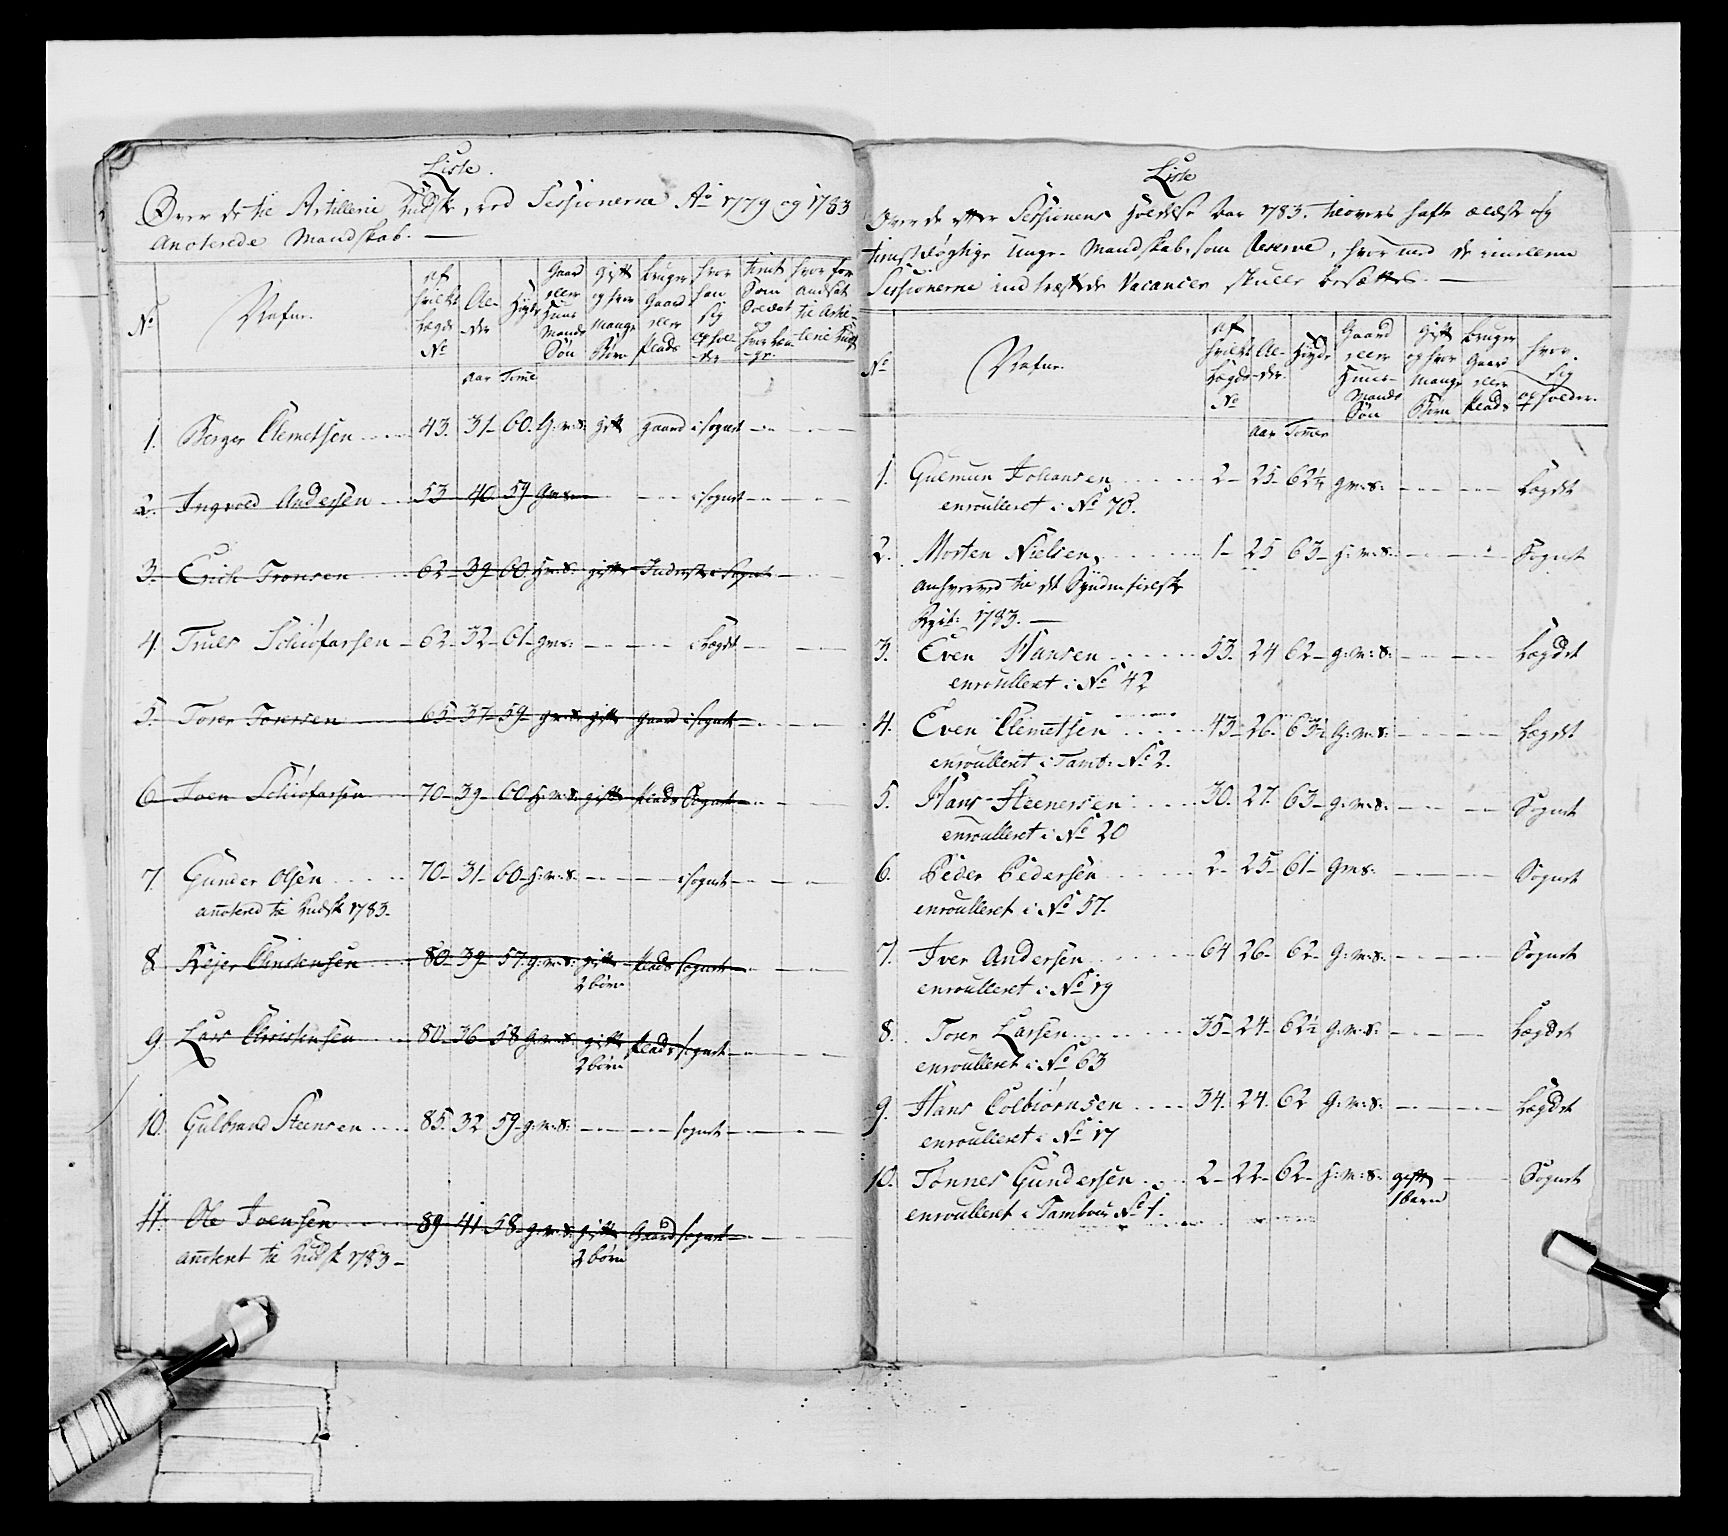 Liste.
Over de til Artillerie Kudsk, ved Sessionerne Ao 1779 og 1783
Anoterede Mandskab.
No
Nafne.
af hvilket Lægds No
Al-der
Høyde
Gaard eller Huus Mands Søn
Gift og hvor Mange Børn
bruger Gaard eller Plads
hvor han sig opholder
tient Som Soldat og hvor længe
hvor for ansat til Artillerie Kudsk
Aar Tome
1. Berger Clemetsen 43. 31 60. G: m: s: gift gaard i sognet
2. Ingvold Andersen 53 40. 59 Gms i sognet
3. Erich Tronsen 62 39 60. H: m: S: gift Inderst i Sognet
4. Truls Schiøfarsen 62 32 61 gms: i Lægdet
5. Torer Torersen 65. 37 59 g: m: s: gift gaard i sognet
6. Joen Schiøfarsen 70 39 60 H: m: s: gift Plads Sognet
7. Gunder Olsen 70 31 60 H: m: s: i sognet
anotered til Kudsk 1783
8 Rejer Christensen 80 39 57. g: m: s: gift Plads sognet
2 børn
9. Lars Christensen 80 36 58 G: m: s: gift Plads sognet
2 børn
10. Gulbrand Steensen 85. 32 59 g: m: s: sognet
11. Ole Joensen 89 41 58 g: m: s: gift Gaard sognet
anoteret til Kudsk 1783 2 børn
Liste
Over de efter Sessionens Holdelse Aar 1783. tilovers hafte ældste og
tienstdøgtige Unge Mandskab, som Reserve, hvormed de imellem
Sessionerne indtræffede Vacancer skulle besættes.
No
Nafne.
af hvilket Lægds No
Al-der.
Høyde
Gaard eller Huus-Mands Søn
Gift og hvor Mange Børn
bruger Gaard eller Plads
hvor sig opholder.
Aar Tomer
1. Gulmun Johansen 2 25 62½ g m: s: Lægdet
enroulleret i No 70.
2. Morten Nielsen, 1 25 63 H: m: S: Sognet
Anhverved til det Søndenfieldske
Rgit: 1783.
3. Even Hansen 53. 24 62 g: m: S: Lægdet
enroulleret i No 42
4. Even Clemetsen 43 26. 63½ G: m: s: Lægdet
enroulleret i Tamb: No 2.
5. Hans Steenersen 30. 27. 63 g: m: s: Sognet
enroulleret i No 20
6. Peder Pedersen 2 25 61 Gms: Sognet
enroulleret i No 57.
7. Iver Andersen 64 26 62 G: m: s: Sognet
enroulleret i No 19
8. Torer Larsen 35 24 62½ G: m: s: Lægdet
enroulleret i No 63
9. Hans Colbiørnsen 34. 24. 62 G: m: s: Lægdet
enroulleret i No 17
10. Tønnes Gundersen 2 22 62 H: m: S: gift Sognet
1 barn
enroulleret i Tambour No 1.